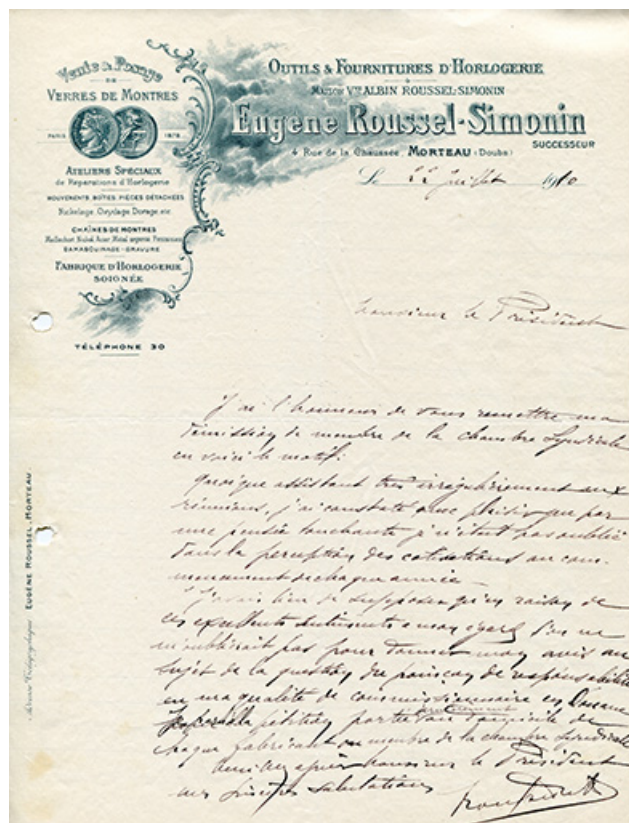 Vente & Posage
DE
VERRES DE MONTRES
PARIS 1878
ATELIERS SPÉCIAUX
de Réparations d'Horlogerie
MOUVEMENTS, BOÎTES, PIÈCES DÉTACHÉES
Nickelage, Oxydage, Dorage, etc
CHAÎNES DE MONTRES
GRAVURE
FABRIQUE D'HORLOGERIE
SOIGNÉE
TÉLÉPHONE 30
OUTILS & FOURNITURES D'HORLOGERIE
MAISON VVE ALBIN ROUSSEL-SIMONIN
Eugène Roussel-Simonin
SUCCESSEUR
4 Rue de la Chaussée, MORTEAU (Doubs)
Le 22 Juillet 1910
Monsieur le Président
J'ai l'honneur de vous remettre ma
démission de membre de la chambre Syndicale
en voici le motif:
Quoique assistant très irrégulièrement aux
réunions, j'ai constaté avec plaisir que par
une pensée touchante je n'étais pas oublié
dans la perception des cotisations au com-
mencement de chaque année
J'avais lieu de supposer qu'en raison de
ces excellents sentiments à mon égard l'on ne
m'oublierait pas pour donner mon avis au
sujet de la question du poinçon de responsabilité
en ma qualité de commissionnaire en Douane
pétition
chaque fabricant ou membre de la chambre Syndicale
Monsieur le Président
mes sincères salutations
Adresse Télégraphique EUGÈNE ROUSSEL-MORTEAU